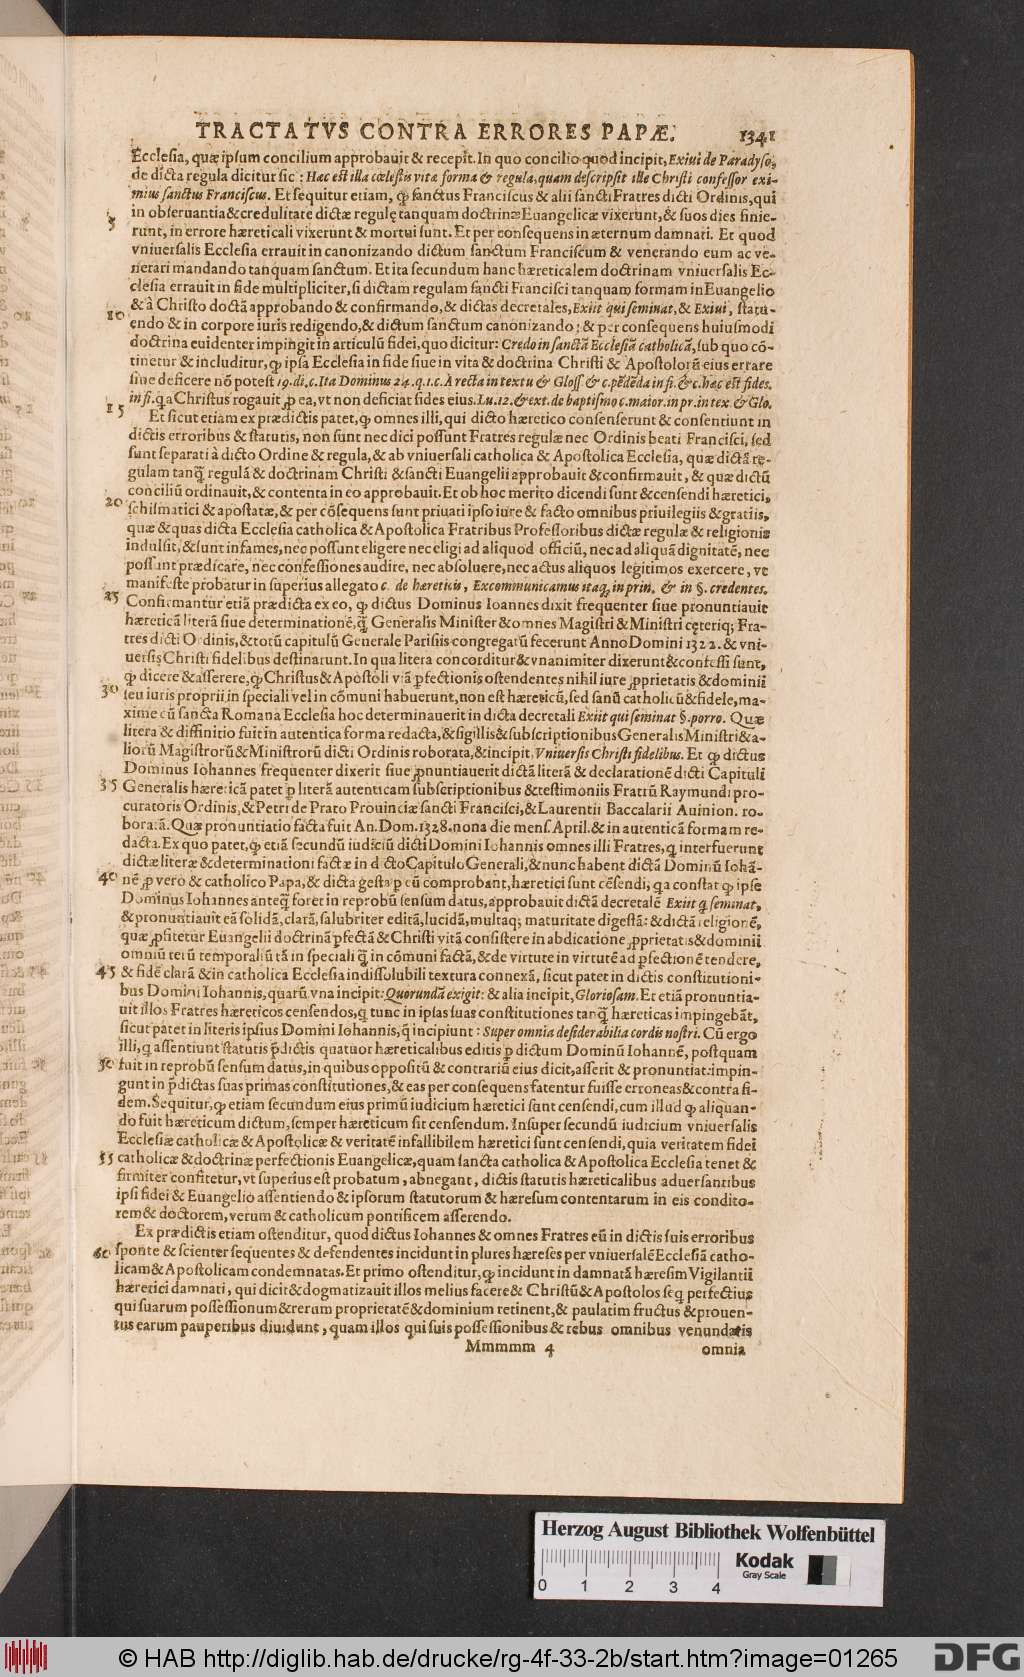 TRACTATVS CONTRA ERRORES PAPÆ. 1341
Ecclesia, quæ ipsum concilium approbauit & recepit. In quo concilio quod incipit, Exiui de Paradyso,
de dicta regula dicitur sic: Hæc est illa cœlestis vitæ forma & regula, quam descripsit ille Christi confessor exi-
mius sanctus Franciscus. Et sequitur etiam, ꝙ sanctus Franciscus & alii sancti Fratres dicti Ordinis, qui
in obseruantia & credulitate dictæ regulę tanquam doctrinæ Euangelicæ vixerunt, & suos dies finie-
5 runt, in errore hæreticali vixerunt & mortui sunt. Et per consequens in æternum damnati. Et quod
vniuersalis Ecclesia errauit in canonizando dictum sanctum Franciscum & venerando eum ac ve-
nerari mandando tanquam sanctum. Et ita secundum hanc hæreticalem doctrinam vniuersalis Ec-
clesia errauit in fide multipliciter, si dictam regulam sancti Francisci tanquam formam in Euangelio
& à Christo doctā approbando & confirmando, & dictas decretales, Exiit qui seminat, & Exiui, statu-
10 endo & in corpore iuris redigendo, & dictum sanctum canonizando: & per consequens huiusmodi
doctrina euidenter impingit in articulū fidei, quo dicitur: Credo in sanctā Ecclesiā catholicā, sub quo cō-
tinetur & includitur, ꝙ ipsa Ecclesia in fide siue in vita & doctrina Christi & Apostolorū eius errare
siue deficere nō potest 19. di. c. Ita Dominus 24. q. 1. c. A recta in textu & Gloss. & c. pēdēda in fi. & c. hæc est fides.
in fi. q̄a Christus rogauit ꝓ ea, vt non deficiat fides eius. Lu. 12. & ext. de baptismo c. maior. in pr. in tex. & Glo.
15 Et sicut etiam ex prædictis patet, ꝙ omnes illi, qui dicto hæretico consenserunt & consentiunt in
dictis erroribus & statutis, non sunt nec dici possunt Fratres regulæ nec Ordinis beati Francisci, sed
sunt separati à dicto Ordine & regula, & ab vniuersali catholica & Apostolica Ecclesia, quæ dictā re-
gulam tanq̄ regulā & doctrinam Christi & sancti Euangelii approbauit & confirmauit, & quæ dictū
conciliū ordinauit, & contenta in eo approbauit. Et ob hoc merito dicendi sunt & censendi hæretici,
20 schismatici & apostatæ, & per cōsequens sunt priuati ipso iure & facto omnibus priuilegiis & gratiis,
quæ & quas dicta Ecclesia catholica & Apostolica Fratribus Professoribus dictæ regulæ & religionis
indulsit, & sunt infames, nec possunt eligere nec eligi ad aliquod officiū, nec ad aliquā dignitatē, nec
possunt prædicare, nec confessiones audire, nec absoluere, nec actus aliquos legitimos exercere, vt
manifeste probatur in superius allegato c. de hæreticis, Excommunicamus itaq; in prin. & in §. credentes.
25 Confirmantur etiā prædicta ex eo, ꝙ dictus Dominus Ioannes dixit frequenter siue pronuntiauit
hæreticā literā siue determinationē, q̄ Generalis Minister & omnes Magistri & Ministri cęteriq; Fra-
tres dicti Ordinis, & totū capitulū Generale Parisiis congregatū fecerunt Anno Domini 1322. & vni-
uersis Christi fidelibus destinarunt. In qua litera concorditur & vnanimiter dixerunt & confessi sunt,
ꝙ dicere & asserere, ꝙ Christus & Apostoli viā ꝑfectionis ostendentes nihil iure ꝓprietatis & dominii
30 seu iuris proprii in speciali vel in cōmuni habuerunt, non est hæreticū, sed sanū catholicū & fidele, ma-
xime cū sancta Romana Ecclesia hoc determinauerit in dicta decretali Exiit qui seminat §. porro. Quæ
litera & diffinitio fuit in autentica forma redacta, & sigillis & subscriptionibus Generalis Ministri & a-
liorū Magistrorū & Ministrorū dicti Ordinis roborata, & incipit, Vniuersis Christi fidelibus. Et ꝙ dictus
Dominus Iohannes frequenter dixerit siue ꝓnuntiauerit dictā literā & declarationē dicti Capituli
35 Generalis hæreticā patet ꝑ literā autenticam subscriptionibus & testimoniis Fratrū Raymundi pro-
curatoris Ordinis, & Petri de Prato Prouinciæ sancti Francisci, & Laurentii Baccalarii Auinion. ro-
boratā. Quæ pronuntiatio facta fuit An. Dom. 1328. nona die mens. April. & in autenticā formam re-
dacta. Ex quo patet, ꝙ etiā secundū iudiciū dicti Domini Iohannis omnes illi Fratres, q̄ interfuerunt
dictæ literæ & determinationi factæ in dicto Capitulo Generali, & nunc habent dictā Dominū Iohā-
40 nē ꝓ vero & catholico Papa, & dicta gesta ꝑ eū comprobant, hæretici sunt cēsendi, q̄a constat ꝙ ipse
Dominus Iohannes anteq̄ foret in reprobū sensum datus, approbauit dictā decretalē Exiit q̄ seminat,
& pronuntiauit eā solidā, clarā, salubriter editā, lucidā, multaq; maturitate digestā: & dictā religionē,
quæ ꝓfitetur Euangelii doctrinā ꝑfectā & Christi vitā consistere in abdicatione ꝓprietatis & dominii
omniū rerū temporaliū tā in speciali q̄ in cōmuni factā, & de virtute in virtutē ad ꝑfectionē tendere,
45 & fidē clarā & in catholica Ecclesia indissolubili textura connexā, sicut patet in dictis constitutioni-
bus Domini Iohannis, quarū vna incipit: Quorundā exigit: & alia incipit, Gloriosam. Et etiā pronuntia-
uit illos Fratres hæreticos censendos, q̄ tunc in ipsas suas constitutiones tanq̄ hæreticas impingebāt,
sicut patet in literis ipsius Domini Iohannis, q̄ incipiunt: Super omnia desiderabilia cordis nostri. Cū ergo
illi, q̄ assentiunt statutis p̄dictis quatuor hæreticalibus editis ꝑ dictum Dominū Iohannē, postquam
50 fuit in reprobū sensum datus, in quibus oppositū & contrariū eius dicit, asserit & pronuntiat: impin-
gunt in p̄dictas suas primas constitutiones, & eas per consequens fatentur fuisse erroneas & contra fi-
dem. Sequitur, ꝙ etiam secundum eius primū iudicium hæretici sunt censendi, cum illud ꝙ aliquan-
do fuit hæreticum dictum, semper hæreticum sit censendum. Insuper secundū iudicium vniuersalis
Ecclesiæ catholicæ & Apostolicæ & veritatē infallibilem hæretici sunt censendi, quia veritatem fidei
55 catholicæ & doctrinæ perfectionis Euangelicæ, quam sancta catholica & Apostolica Ecclesia tenet &
firmiter confitetur, vt superius est probatum, abnegant, dictis statutis hæreticalibus aduersantibus
ipsi fidei & Euangelio assentiendo & ipsorum statutorum & hæresum contentarum in eis condito-
rem & doctorem, verum & catholicum pontificem asserendo.
Ex prædictis etiam ostenditur, quod dictus Iohannes & omnes Fratres eū in dictis suis erroribus
60 sponte & scienter sequentes & defendentes incidunt in plures hæreses per vniuersalē Ecclesiā catho-
licam & Apostolicam condemnatas. Et primo ostenditur, ꝙ incidunt in damnatā hæresim Vigilantii
hæretici damnati, qui dicit & dogmatizauit illos melius facere & Christū & Apostolos seq̄ perfectius
qui suarum possessionum & rerum proprietatē & dominium retinent, & paulatim fructus & prouen-
tus earum pauperibus diuidunt, quam illos qui suis possessionibus & rebus omnibus venundatis
Mmmmm 4 omnia
Herzog August Bibliothek Wolfenbüttel
Kodak
Gray Scale
0 1 2 3 4
© HAB http://diglib.hab.de/drucke/rg-4f-33-2b/start.htm?image=01265
DFG